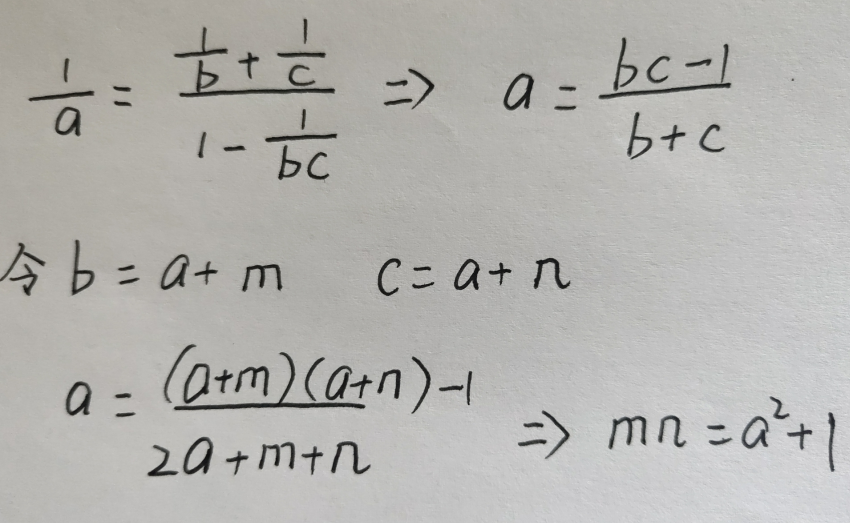 1/a = (1/b + 1/c)/(1 - 1/bc) ⇒ a = (bc-1)/(b+c)
令 b = a+m c = a+n
a = ((a+m)(a+n)-1)/(2a+m+n) ⇒ mn = a²+1